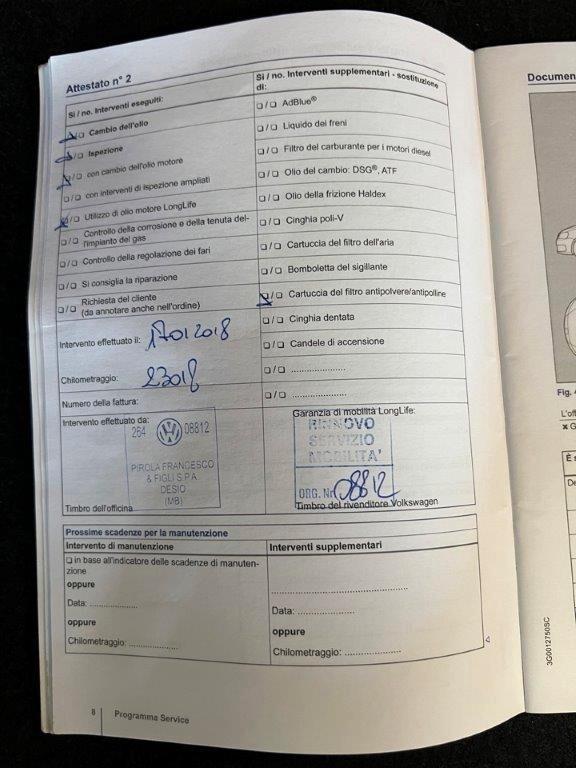 Attestato n° 2
Sì / no. Interventi eseguiti:
❑ / ❑ Cambio dell'olio
❑ / ❑ Ispezione
❑ / ❑ con cambio dell'olio motore
❑ / ❑ con interventi di ispezione ampliati
❑ / ❑ Utilizzo di olio motore LongLife
❑ / ❑ Controllo della corrosione e della tenuta del-
l'impianto del gas
❑ / ❑ Controllo della regolazione dei fari
❑ / ❑ Si consiglia la riparazione
❑ / ❑ Richiesta del cliente
(da annotare anche nell'ordine)
Intervento effettuato il: 17012018
Chilometraggio: 23018
Numero della fattura:
Intervento effettuato da:
264 08812
PIROLA FRANCESCO
& FIGLI S.P.A.
DESIO
(MB)
Timbro dell'officina
Sì / no. Interventi supplementari - sostituzione
di:
❑ / ❑ AdBlue®
❑ / ❑ Liquido dei freni
❑ / ❑ Filtro del carburante per i motori diesel
❑ / ❑ Olio del cambio: DSG®, ATF
❑ / ❑ Olio della frizione Haldex
❑ / ❑ Cinghia poli-V
❑ / ❑ Cartuccia del filtro dell'aria
❑ / ❑ Bomboletta del sigillante
❑ / ❑ Cartuccia del filtro antipolvere/antipolline
❑ / ❑ Cinghia dentata
❑ / ❑ Candele di accensione
❑ / ❑ ....................
❑ / ❑ ....................
Garanzia di mobilità LongLife:
RINNOVO
SERVIZIO
MOBILITA'
ORG. Nr. 08812
Timbro del rivenditore Volkswagen
Prossime scadenze per la manutenzione
Intervento di manutenzione
❑ in base all'indicatore delle scadenze di manuten-
zione
oppure
Data: ..................
oppure
Chilometraggio: ..................
Interventi supplementari
..................................................
Data: ....................
oppure
Chilometraggio: ..............................
8 Programma Service
Documen
Fig. 4
L'off
✖ G
È s
De
3G0012750SC